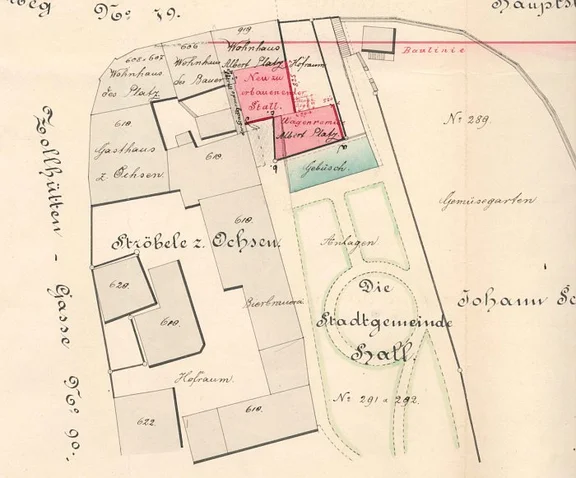 No. 79.
Hauptst
919
606
605.607
Wohnhaus
des Platz
Wohnhaus
des Bauer
Wohnhaus
Albert Platz
Hofraum
Neu zu
erbauender
Stall.
Wagenremise
Albert Platz
Baulinie
No 289.
Gemüsegarten
618
Gasthaus
z. Ochsen.
619.
Gebüsch.
618.
Ströbele z. Ochsen.
Anlagen
620.
619.
Bierbrauerei
Die
Stadtgemeinde
Hall
Johann Sc
Hofraum.
No 291 & 292.
622.
618.
Zollhütten - Gasse No. 90.